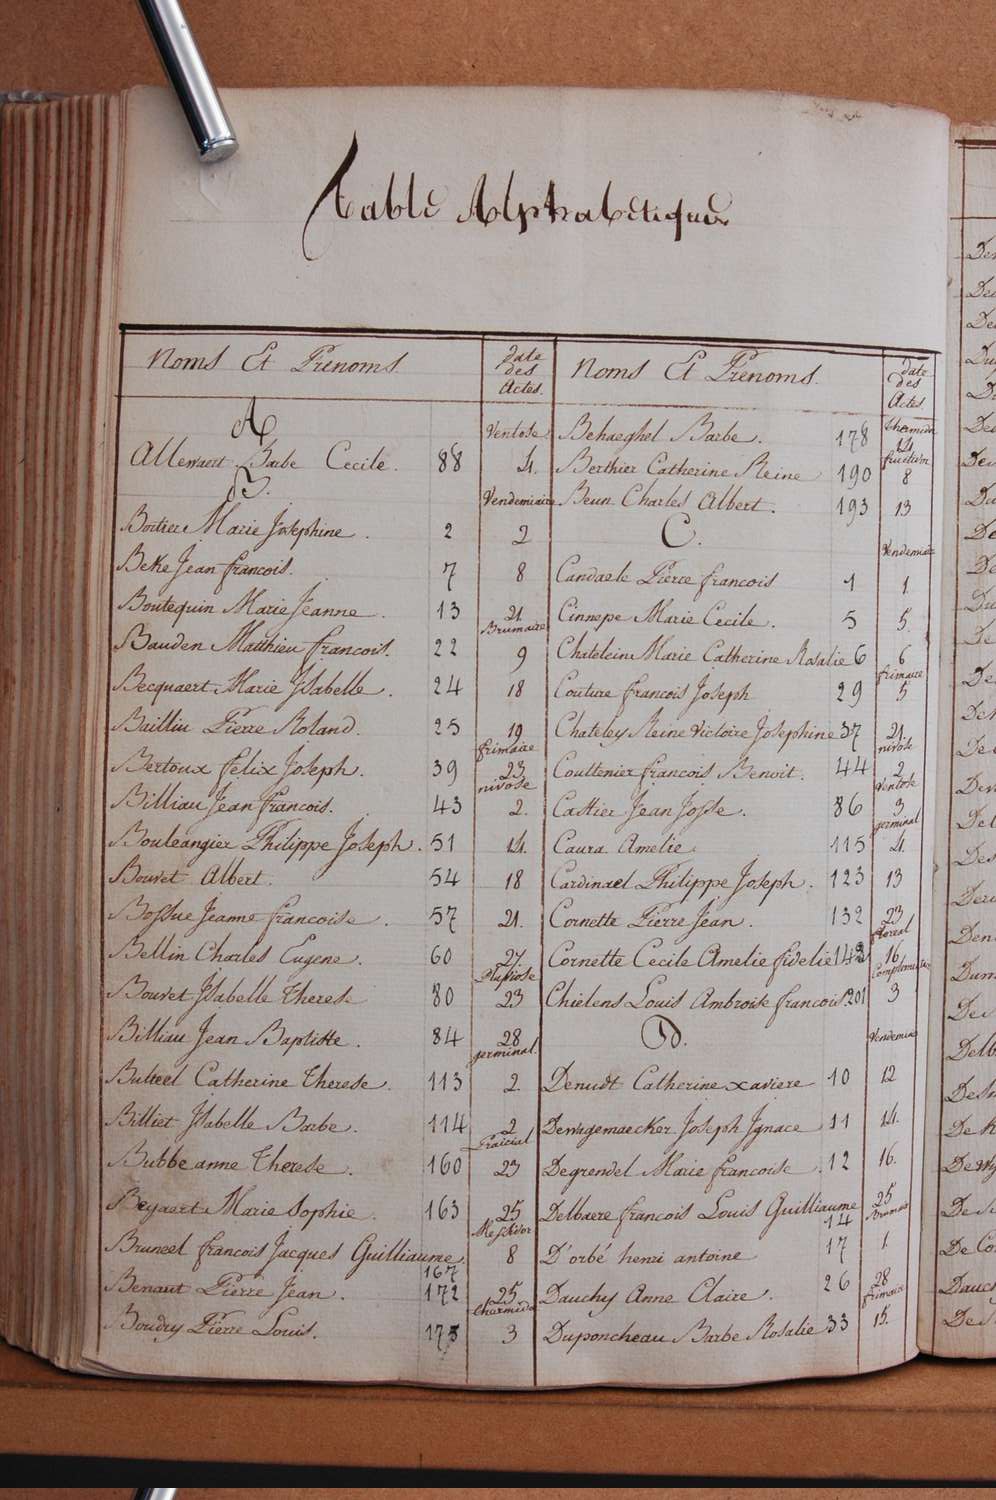 Table Alphabetique
Noms Et Prenoms. date des Actes.
A Ventose
Allewaert Barbe Cecile. 88 4.
B. Vendemiaire
Bortier Marie Josephine. 2 2
Beke Jean francois. 7 8
Boutequin Marie Jeanne. 13 21.
Brumaire
Bauden Matthieu francois. 22 9
Becquaert Marie Isabelle. 24 18
Bailliu Pierre Roland. 25 19
frimaire
Bertoux felix Joseph. 39 23
nivose
Billiau Jean francois. 43 2.
Bouleangier Philippe Joseph. 51 14.
Bouvet Albert. 54 18
Bossue Jeanne francoise. 57 21.
Bellin Charles Eugene. 60 27.
Pluviose
Bouvet Isabelle Therese 80 23
Billiau Jean Baptiste. 84 28
germinal.
Bulteel Catherine Therese. 113 2.
Billiet Isabelle Barbe. 114 2
Prairial
Bubbe anne Therese. 160 23
Beyaert Marie Sophie. 163 25
Messidor
Bruneel francois Jacques Guilliaume. 167 8
Benaut Pierre Jean. 172 25
thermidor
Boudry Pierre Louis. 175 3
Noms Et Prenoms. date des Actes.
thermidor
Behaeghel Barbe. 178 14
fructidor
Berthier Catherine Reine 190 8
Beun Charles Albert. 193 13
C. Vendemiaire
Candaele Pierre francois 1 1
Cinnepe Marie Cecile. 5 5.
Chatelein Marie Catherine Rosalie 6 6
frimaire
Couture francois Joseph 29 5
Chateley Reine Victoire Josephine 37 21.
nivose
Couttenier francois Benoit. 44 2
Ventose
Castier Jean Josse. 86 3
germinal
Caura Amelie. 115 4.
Cardinael Philippe Joseph. 123 13
Cornette Pierre Jean. 132 23
floreal
Cornette Cecile Amelie fidelie 16
Complementaire
Chielens Louis Ambroise francois. 201 3
D. Vendemiaire
Denudt Catherine xaviere 10 12
Denvgemaecker Joseph Ignace 11 14.
Degrendel Marie francoise. 12 16.
Delbaere francois Louis Guilliaume 14 25
Brumaire
D'orbé henri antoine 17 1
Dauchy Anne Claire. 26 28
frimaire
Duponcheau Barbe Rosalie 33 15.